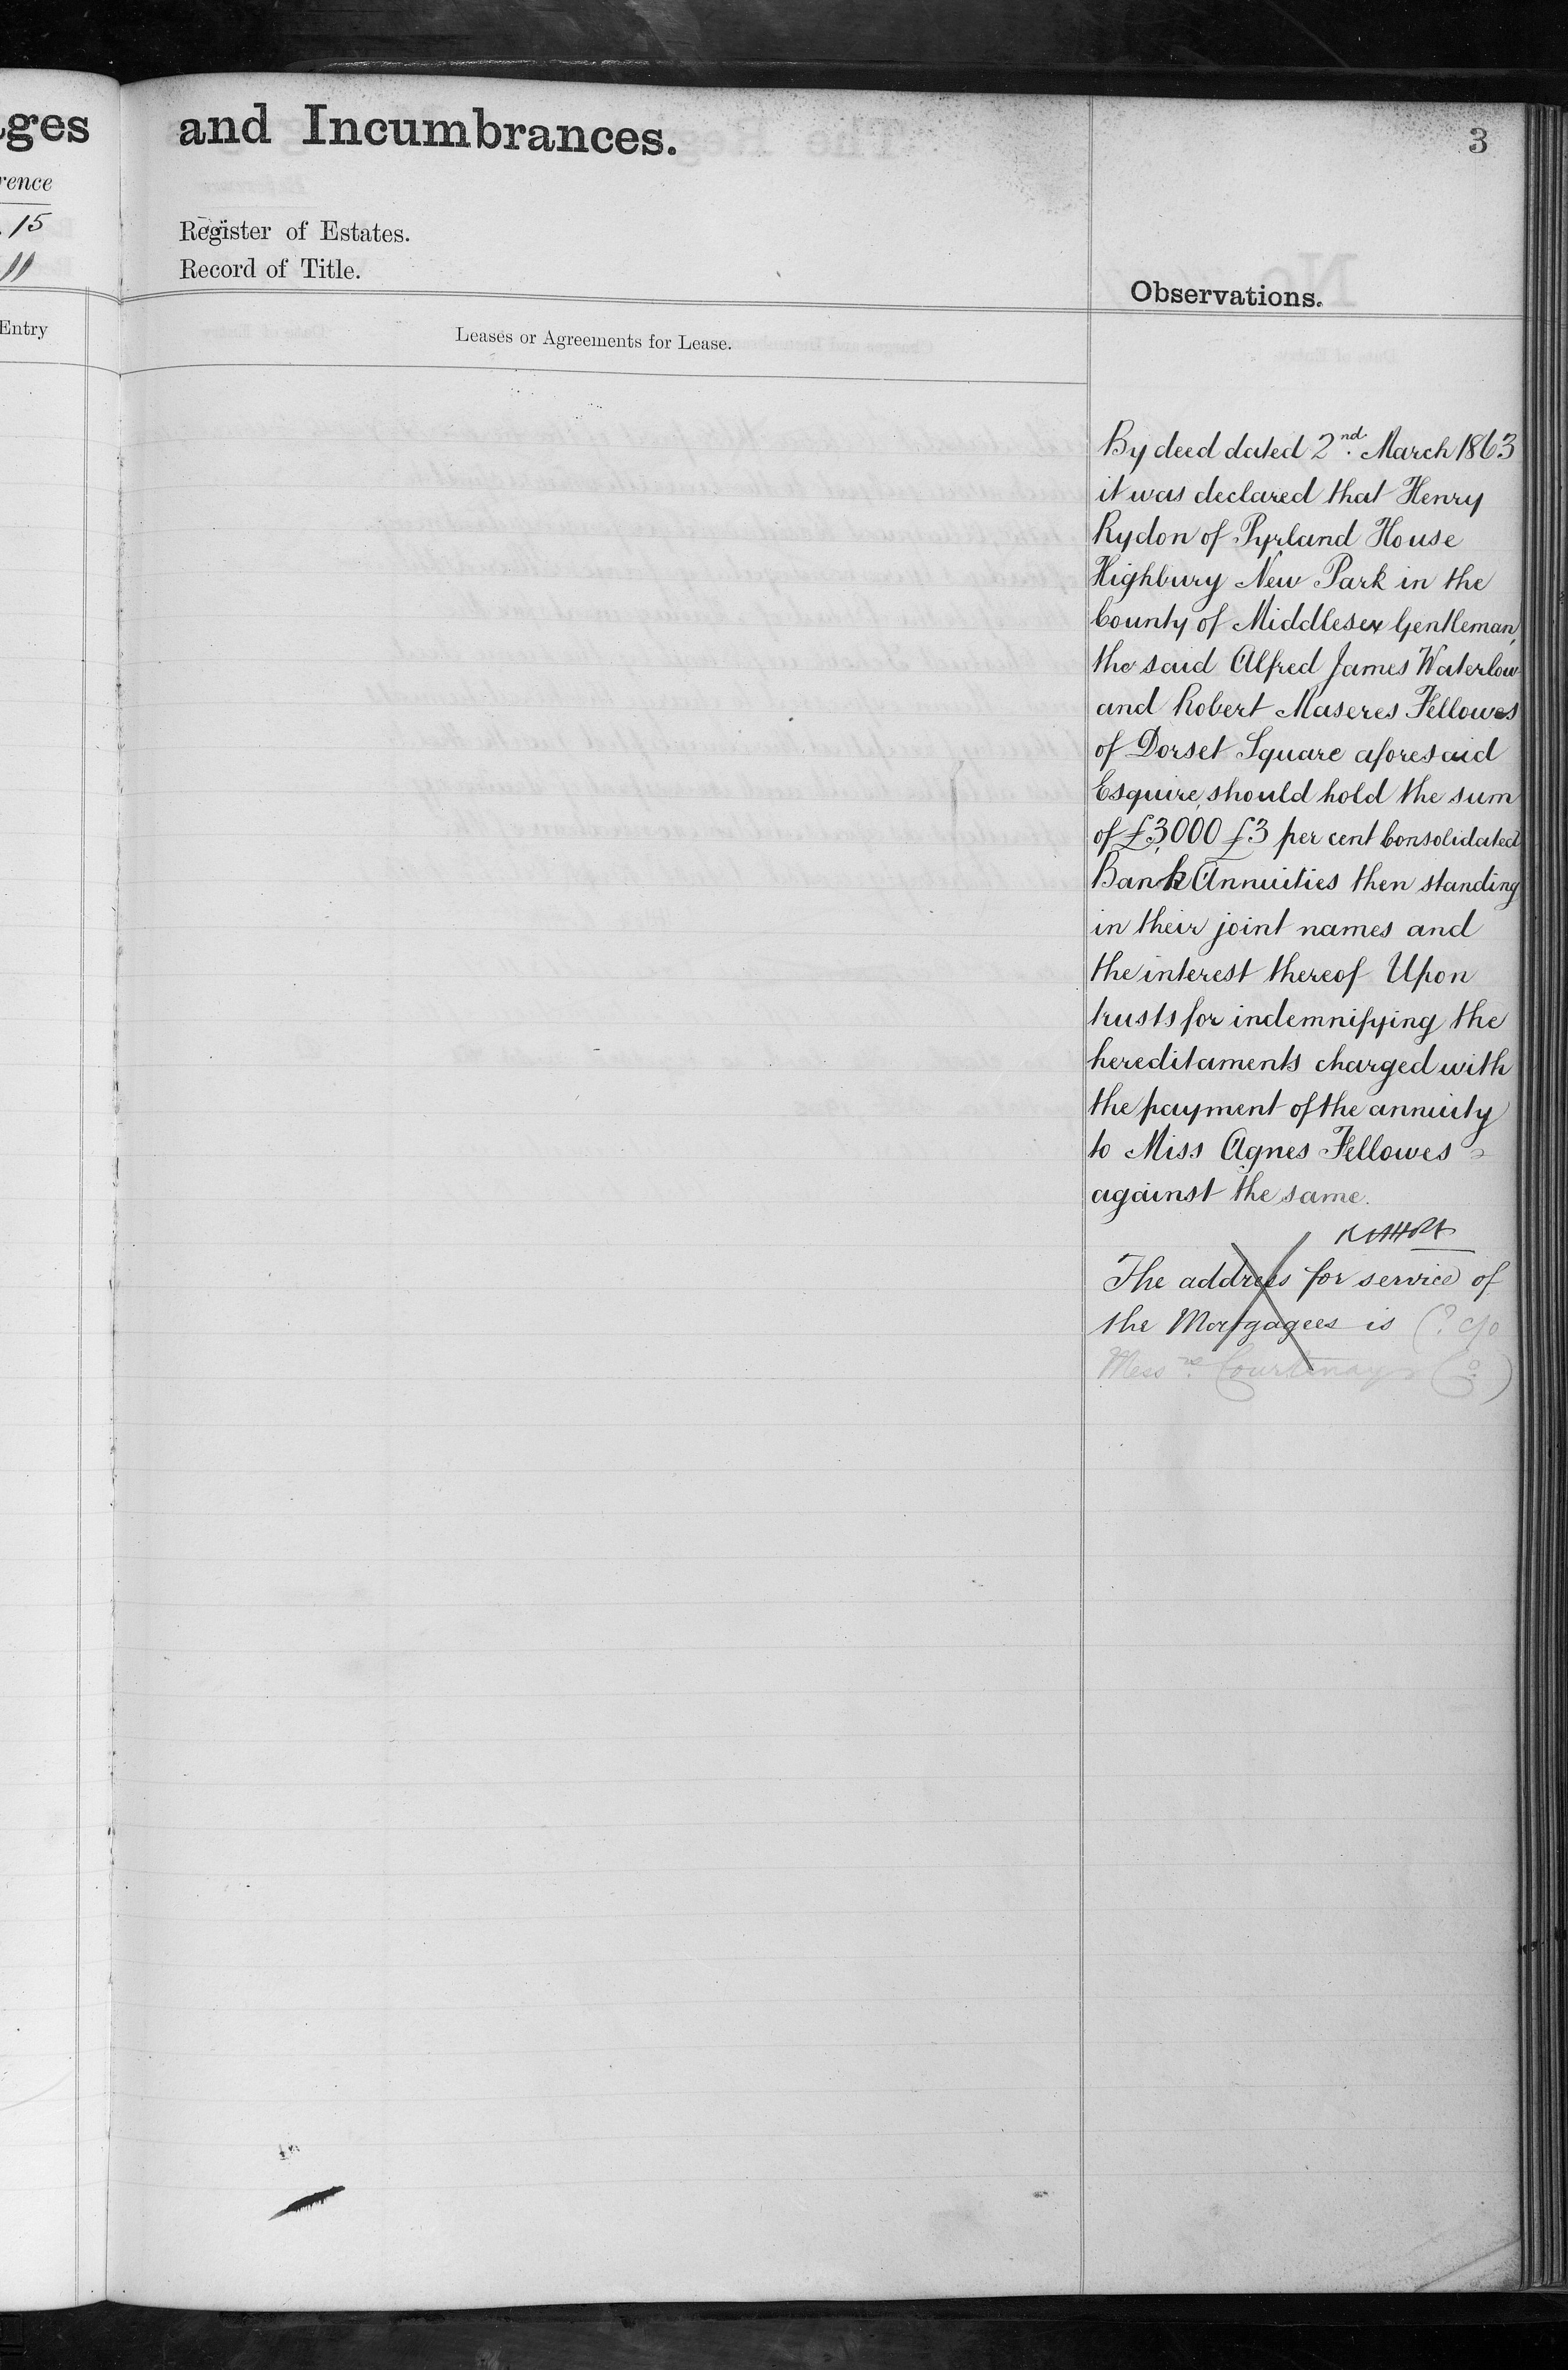 ges and Incumbrances. 3
rence
15 Register of Estates.
11 Record of Title.
Observations.
Entry Leases or Agreements for Lease.
By deed dated 2nd. March 1863
it was declared that Henry
Rydon of Pyrland House
Highbury New Park in the
County of Middlesex Gentleman,
the said Alfred James Waterlow
and Robert Maseres Fellowes
of Dorset Square aforesaid
Esquire, should hold the sum
of £3,000 £3 per cent Consolidated
Bank Annuities then standing
in their joint names and
the interest thereof Upon
trusts for indemnifying the
hereditaments charged with
the payment of the annuity
to Miss Agnes Fellowes
against the same.
The address for service of
the Mortgagees is (? c/o
Messrs. Courtenay & Co.)